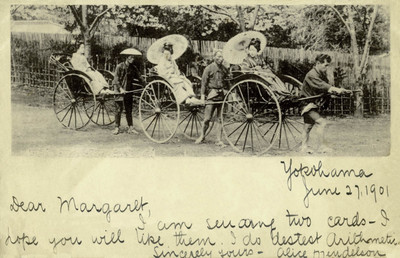 Yokohama
June 27, 1901
Dear Margaret,
I am sending two cards - I
hope you will like them. I do detest Arithmetic.
Sincerely yours - Alice Mendelson